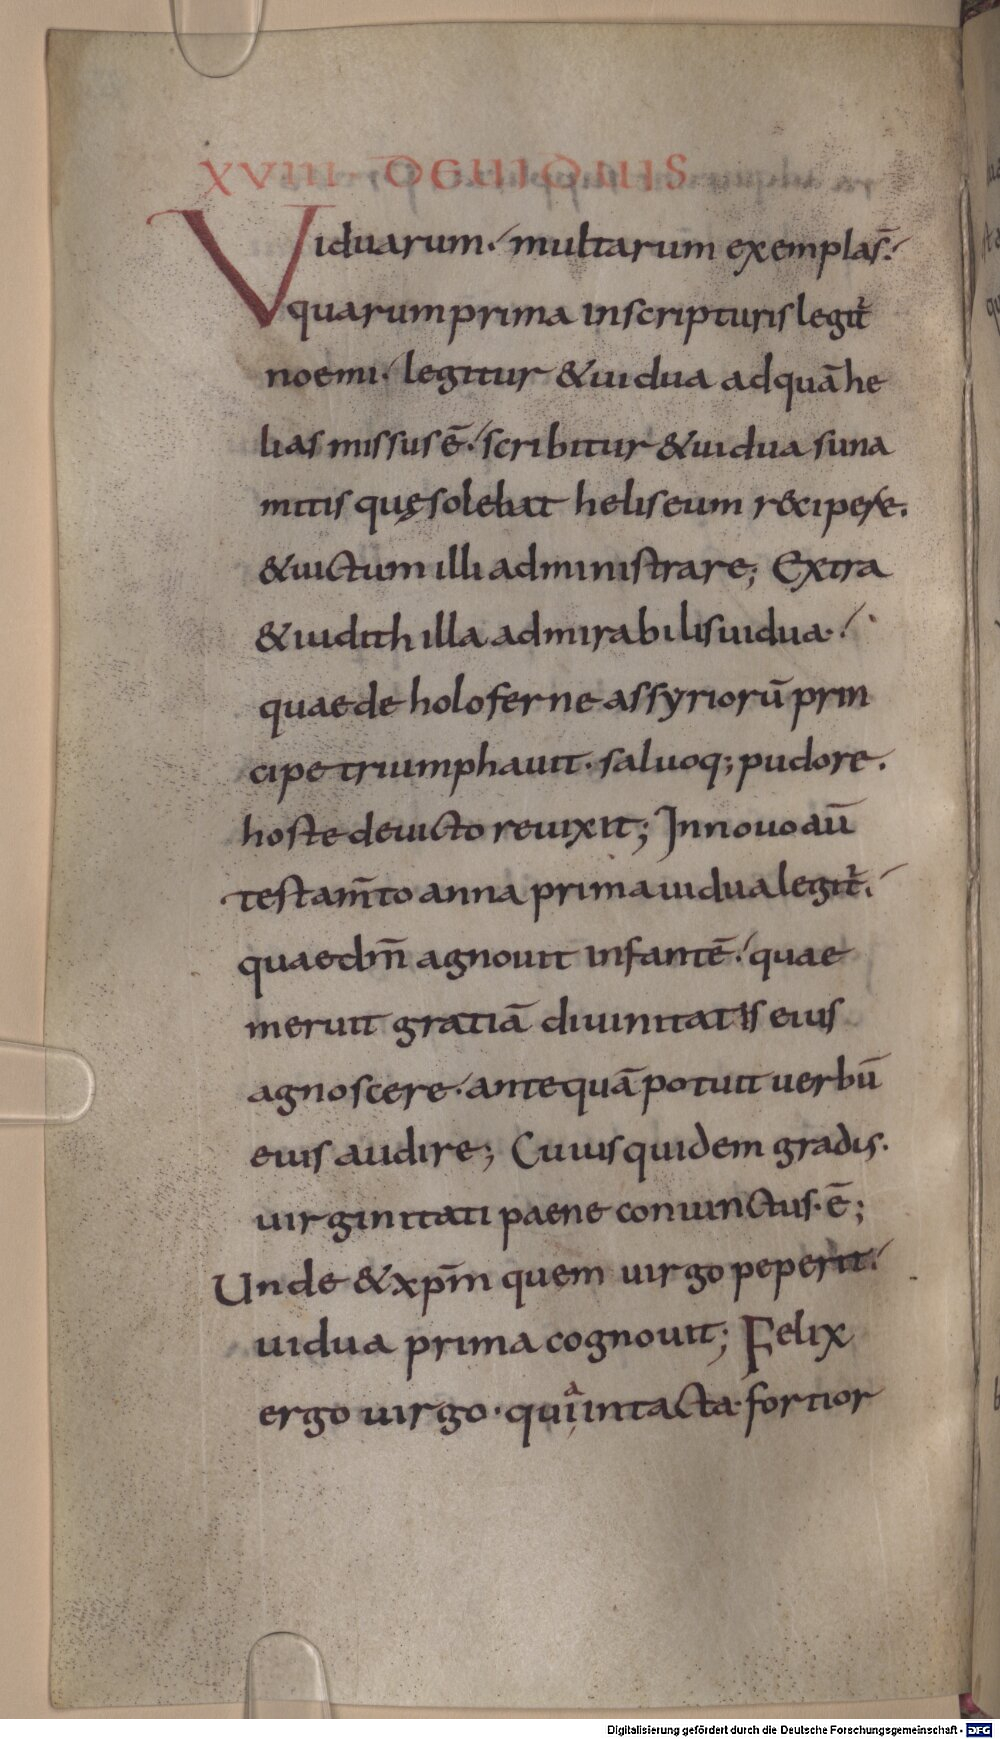 XVIII DEUIDUIS
Viduarum· multarum exempla s̄·
quarum prima inscripturis legit᷑
noemi· legitur & uidua adquā he
lias missus ē· scribitur & uidua suna
mitis quę solebat heliseum recipere·
& uictum illi administrare; Extra
& iudith illa admirabilis uidua·
quae de holoferne assyriorū prin
cipe triumphauit· saluoq; pudore·
hoste deuicto reuixit; In nouo aū
testam̄to anna prima uidua legit᷑·
quae dn̄m agnouit infantē· quae
meruit gratiā diuinitatis eius
agnoscere· antequā potuit uerbū
eius audire; Cuius quidem gradis·
uirginitati paene coniunctus· ē;
Unde & xp̄m quem uirgo peperit·
uidua prima cognouit; Felix
ergo uirgo· quia intacta· fortior
Digitalisierung gefördert durch die Deutsche Forschungsgemeinschaft - DFG